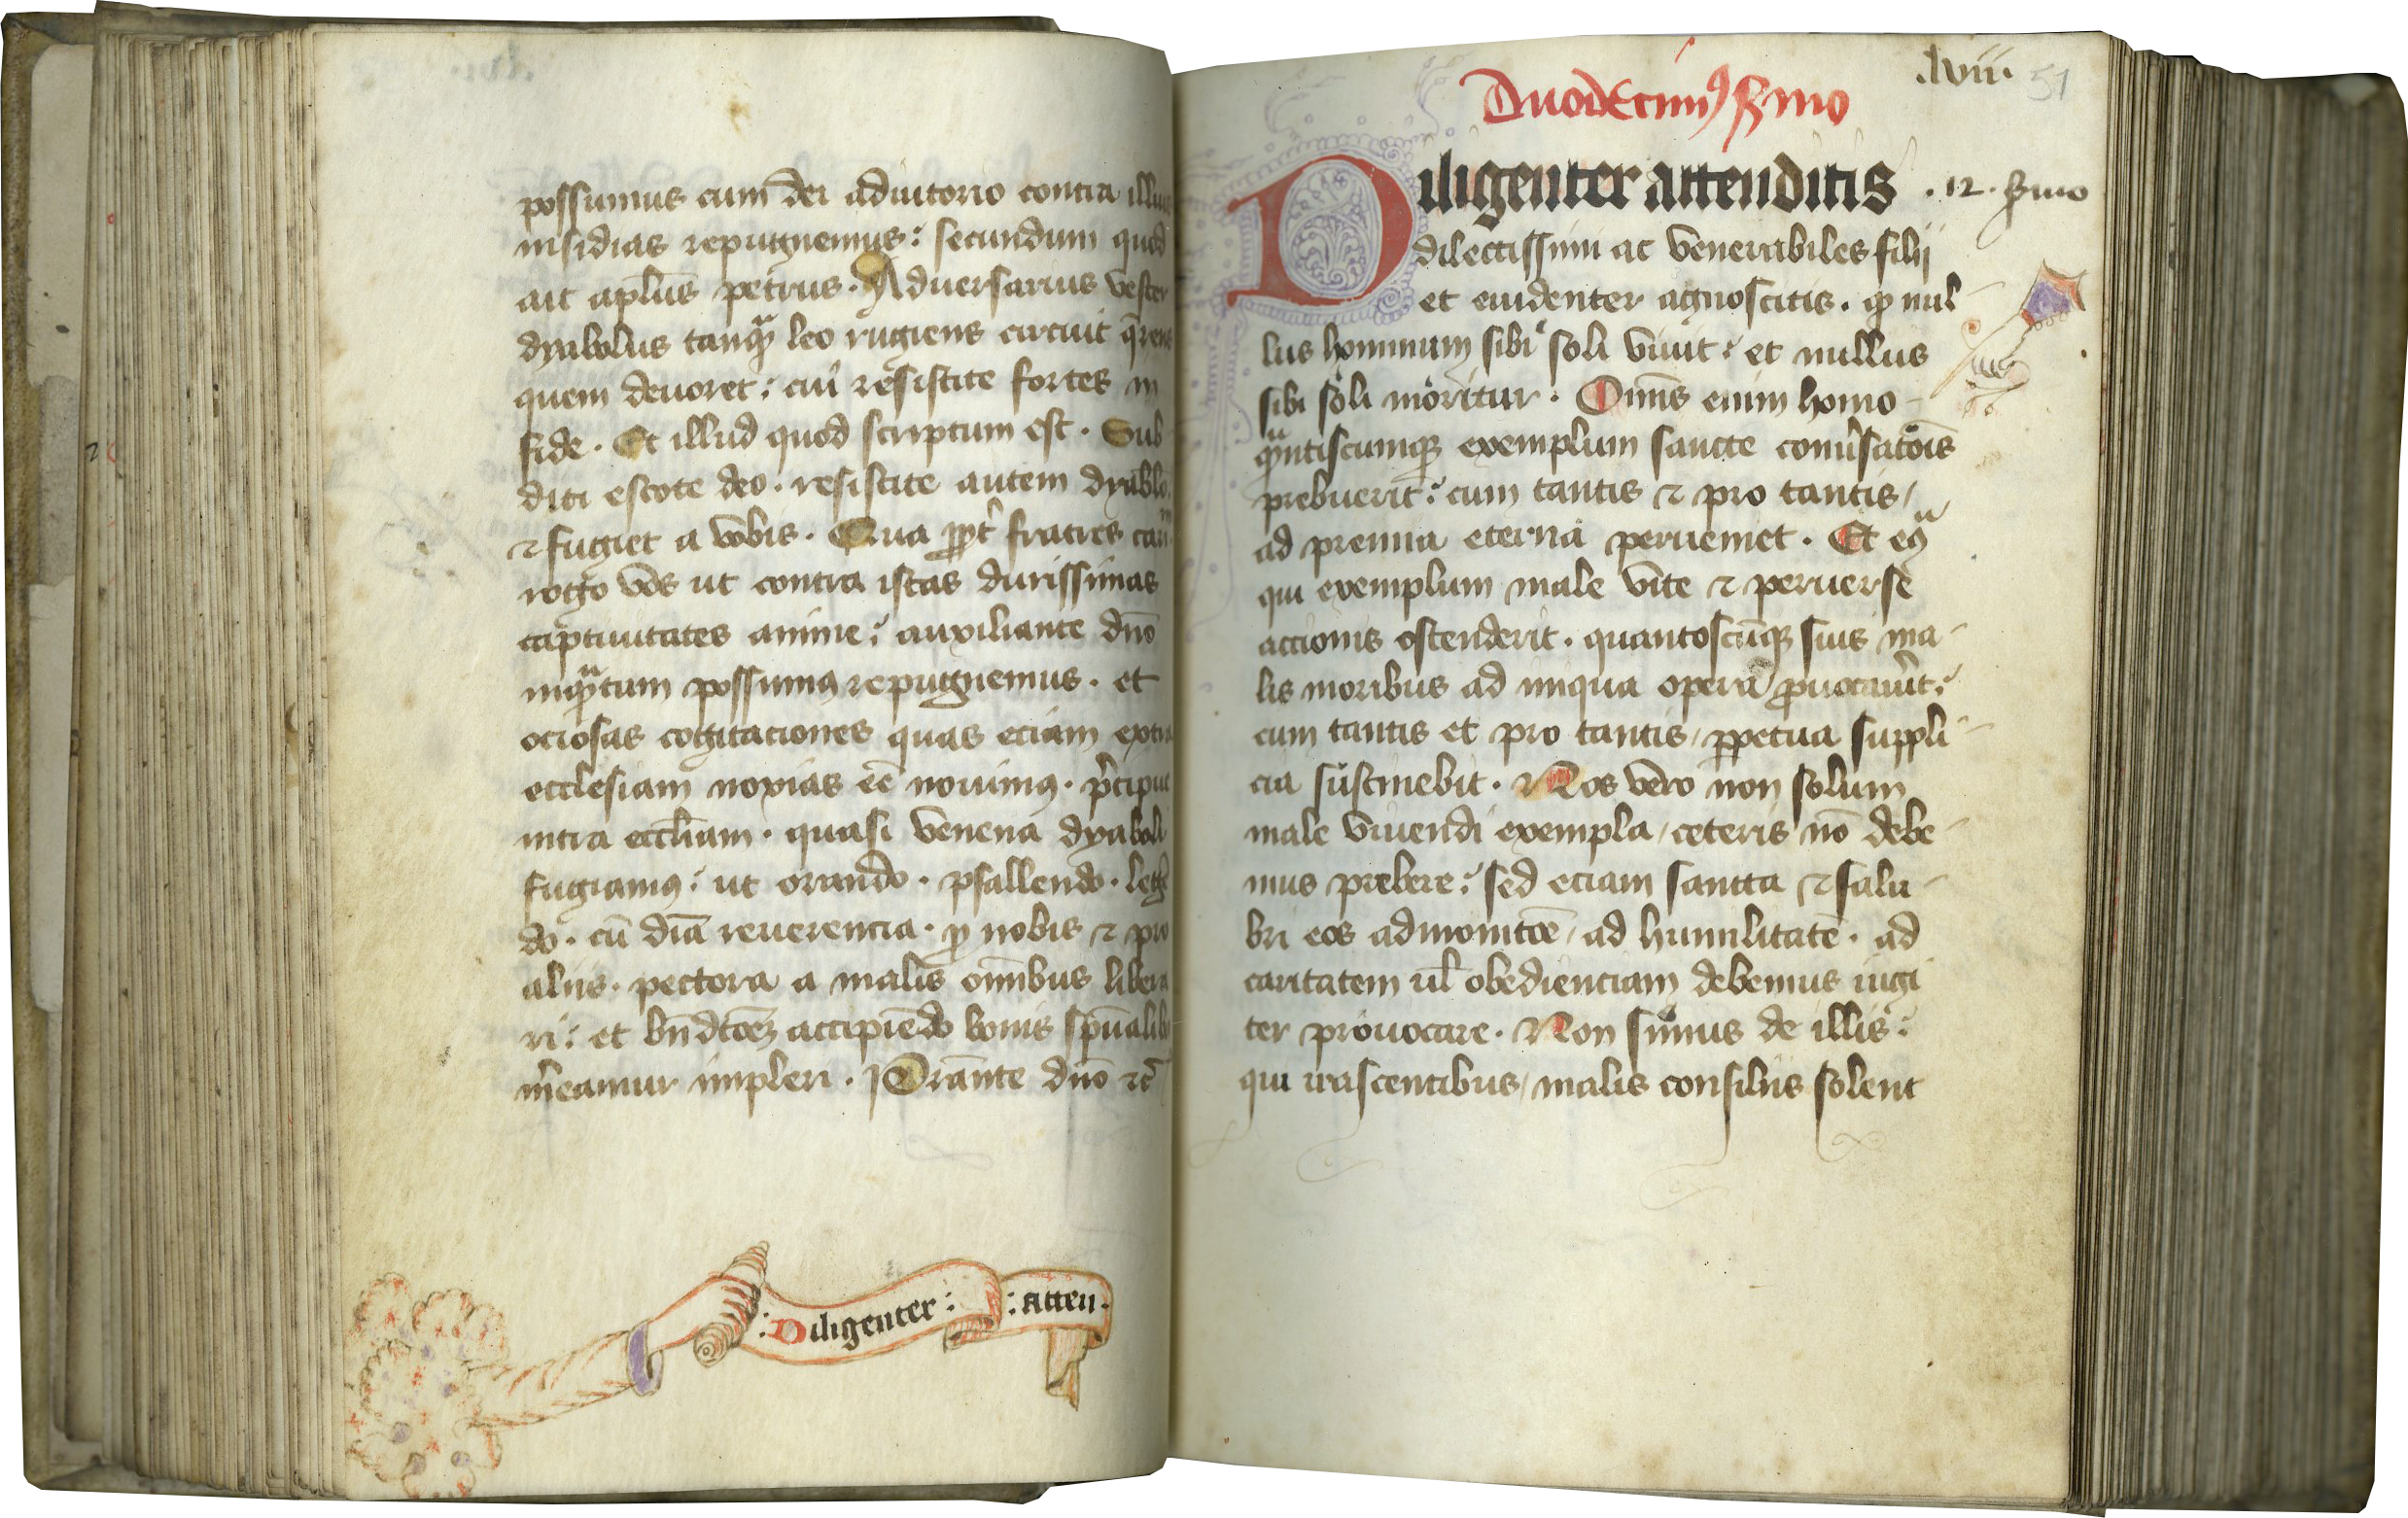 possumus cum dei adiutorio contra illius
insidias repugnemus: secundum quod
ait apl̄us petrus. Aduersarius vester
dyabolus tanqᷓ leo rugiens circuit q̄rens
quem deuoret: cui resistite fortes in
fide. Et illud quod scriptum est. Sub
diti estote deo. resistite autem dyabolo
⁊ fugiet a vobis. Qua ꝓpt̉ fratres cari
rogo vos ut contra istas durissimas
captiuitates anime: auxiliante dn̄o
inqᷓtum possumꝰ repugnemus. et
ociosas cogitaciones quas eciam extra
ecclesiam noxias eē nouimꝰ. p̉cipue
intra eccl̄iam. quasi venena dyaboli
fugiamꝰ: ut orando. psallendo. legē
do. cū dīa reuerencia. ꝓ nobis ⁊ pro
aliis. pectora a malis om̄ibus libera
ri: et bn̄dcōēꝫ accipiēdo bonis sp̄ualibꝰ
m̉eamur impleri. Prestante dn̄o ⁊c̄
:Diligenter: :atten.
.lviii. 51
Duodecimꝰ s̉mo
Diligenter attenditis .12. s̉mo
dilectissimi ac venerabiles filij
et euidenter agnoscitis. ꝙ nul
lus hominum sibi soli viuit: et nullus
sibi soli moritur. Omīs enim homo
qᷓntiscumqꝫ exemplum sancte conủsatōīs
prebuerit: cum tantis ⁊ pro tantis /
ad premia eterna perueniet. Et eͬͣ
qui exemplum male vite ⁊ peruerse
accionis ostenderit. quantoscūqꝫ suis ma
lis moribus ad iniqua opera ꝓuocaủit:
cum tantis et pro tantis / ꝑpetua suppli
cia sustinebit. Nos vero non solum
male viuendi exempla / ceteris nō debe
mus prebere: sed eciam sancta ⁊ salu
bri eos admonitōē / ad humilitatē. ad
caritatem ul̉ obedienciam debemus iugi
ter prouocare. Non simus de illis:
qui irascentibus / malis consiliis solent